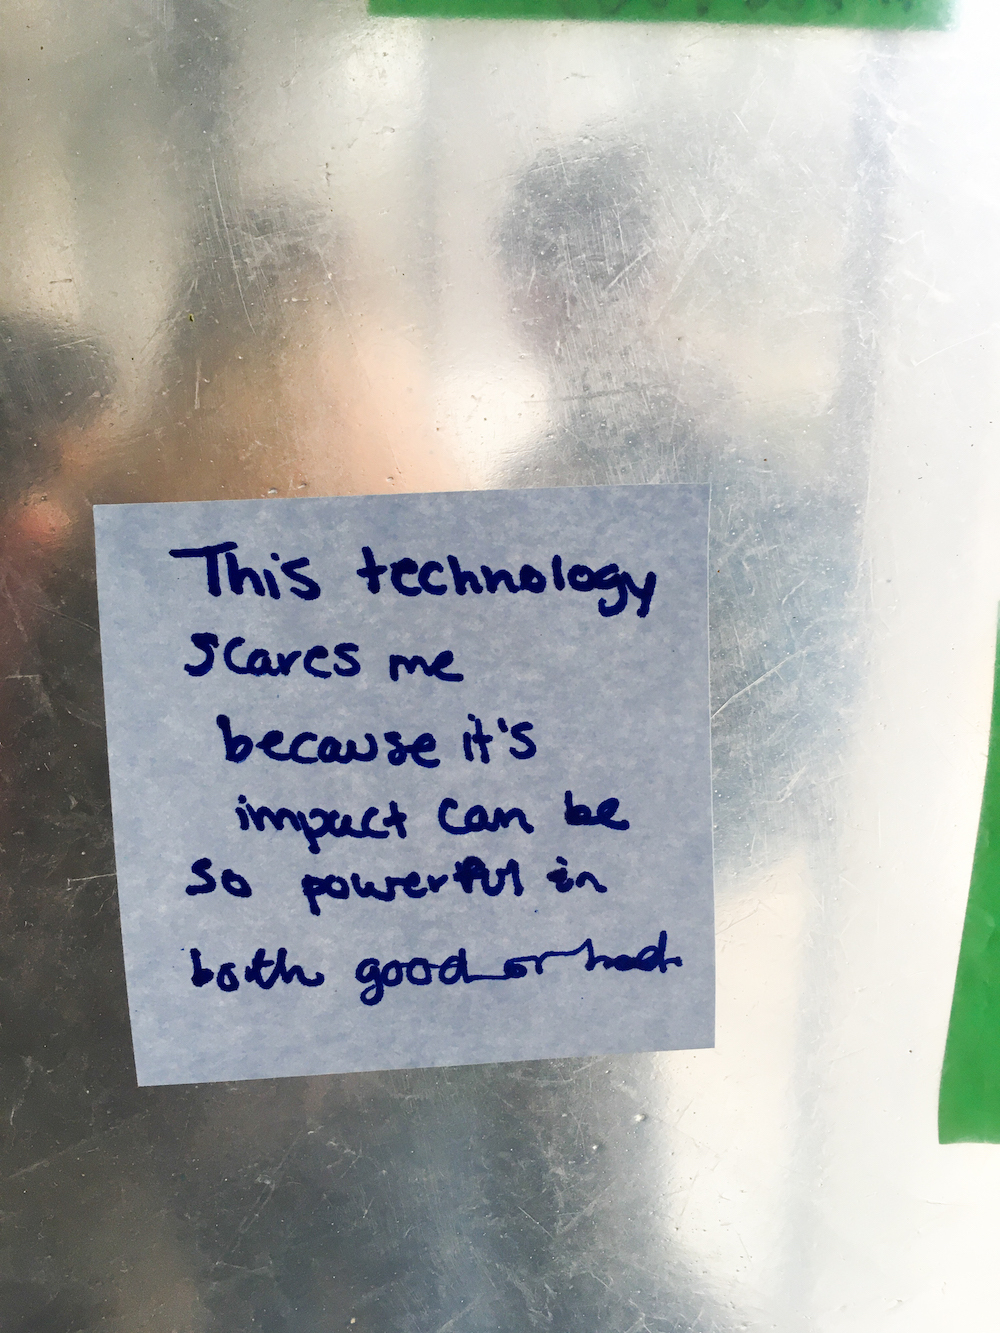 This technology
scares me
because it's
impact can be
so powerful in
both good or bad